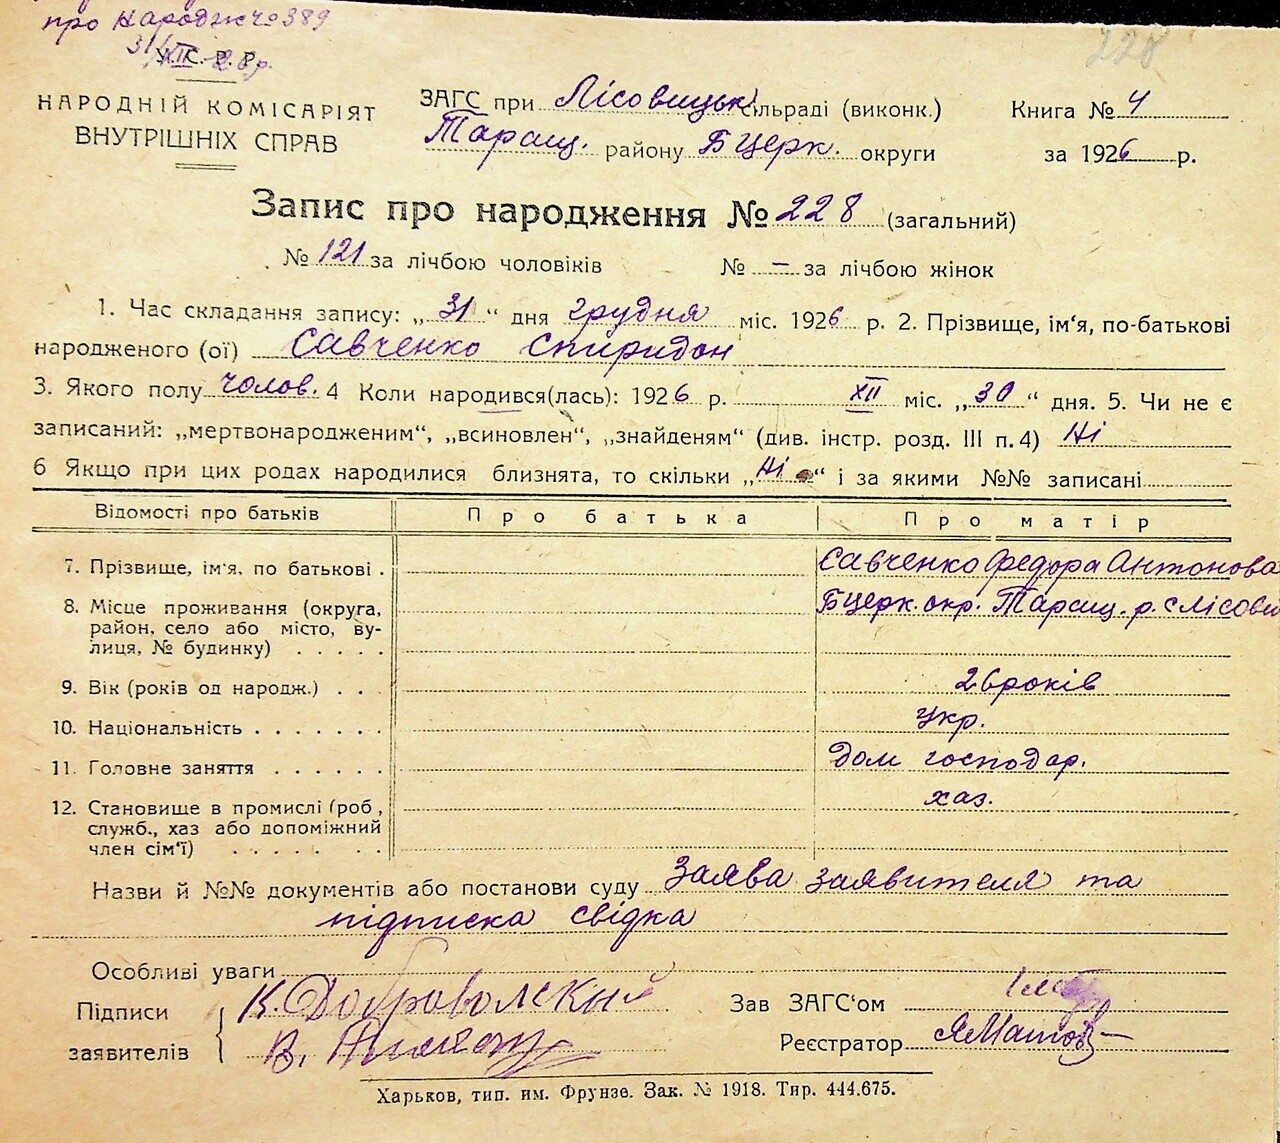 про Народж № 389
31/XII 26 р.
У. С. Р. Р.
228
НАРОДНІЙ КОМІСАРІЯТ
ВНУТРІШНІХ СПРАВ
ЗАГС при Лісовицьк. сільраді (виконк.)
Таращ. району БЦерк. округи
Книга № 4
за 1926 р.
Запис про народження № 228 (загальний)
№ 121 за лічбою чоловіків № — за лічбою жінок
1. Час складання запису: „31“ дня грудня міс. 1926 р. 2. Прізвище, ім'я, по-батькові
народженого (ої) Савченко Спиридон
3. Якого полу чолов. 4 Коли народився(лась): 1926 р. XII міс. „30“ дня. 5. Чи не є
записаний: „мертвонародженим“, „всиновлен“, „знайденям“ (див. інстр. розд. III п. 4) Ні
6 Якщо при цих родах народилися близнята, то скільки „Ні“ і за якими №№ записані
Відомості про батьків Про батька Про матір
7. Прізвище, ім'я, по батькові . Савченко Федора Антонова
8. Місце проживання (округа, БЦерк. окр. Таращ. р. с Лісови
район, село або місто, ву-
лиця, № будинку) . . . . .
9. Вік (років од народж.) . . . 26 років
10. Національність . . . . . . . укр.
11. Головне заняття . . . . . . Дом господар.
12. Становище в промислі (роб, хаз.
служб., хаз або допоміжний
член сім'ї) . . . . . .
Назви й №№ документів або постанови суду Заява заявителя та
підписка свідка
Особливі уваги
Підписи К. Доброволский Зав ЗАГС'ом
заявителів В. Реєстратор
Харьков, тип. им. Фрунзе. Зак. № 1918. Тир. 444.675.